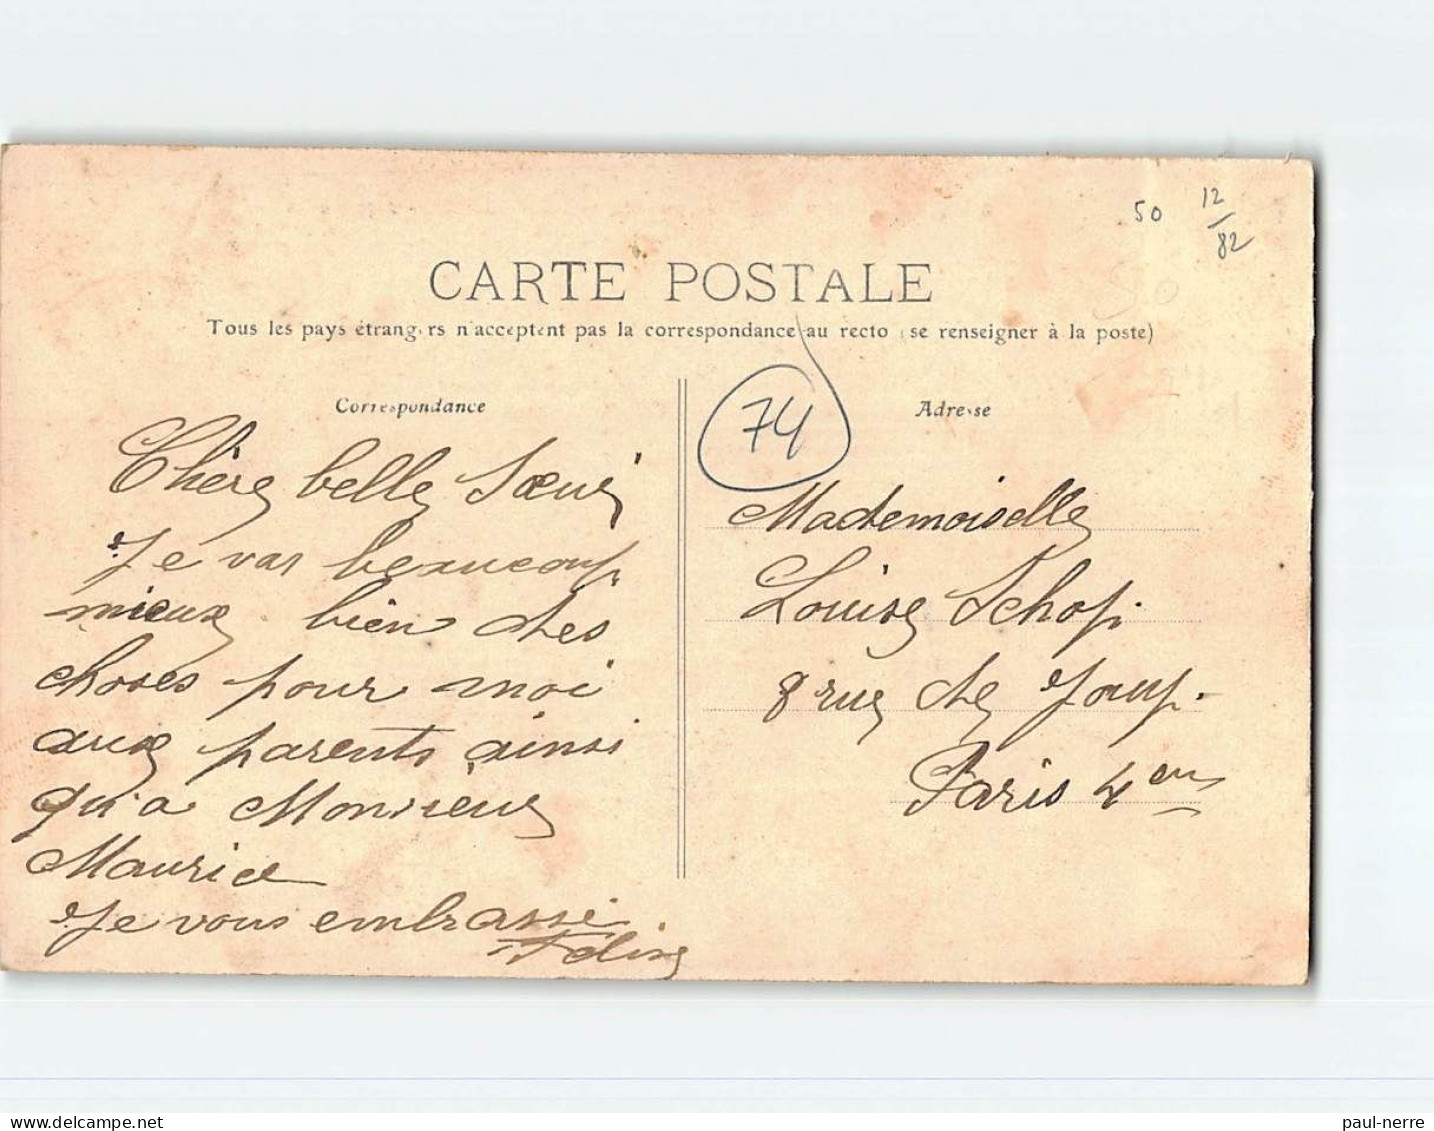 50 12/82
CARTE POSTALE
Tous les pays étrangers n'acceptent pas la correspondance au recto (se renseigner à la poste)
Correspondance
Chère belle Sœur
Je vas beaucoup
mieux bien des
choses pour moi
aux parents ainsi
qu'a Monsieur
Maurice
Je vous embrasse
74
Adresse
Mademoiselle
Louise Schop.
8 rue de Jouy.
Paris 4em
paul-nerre